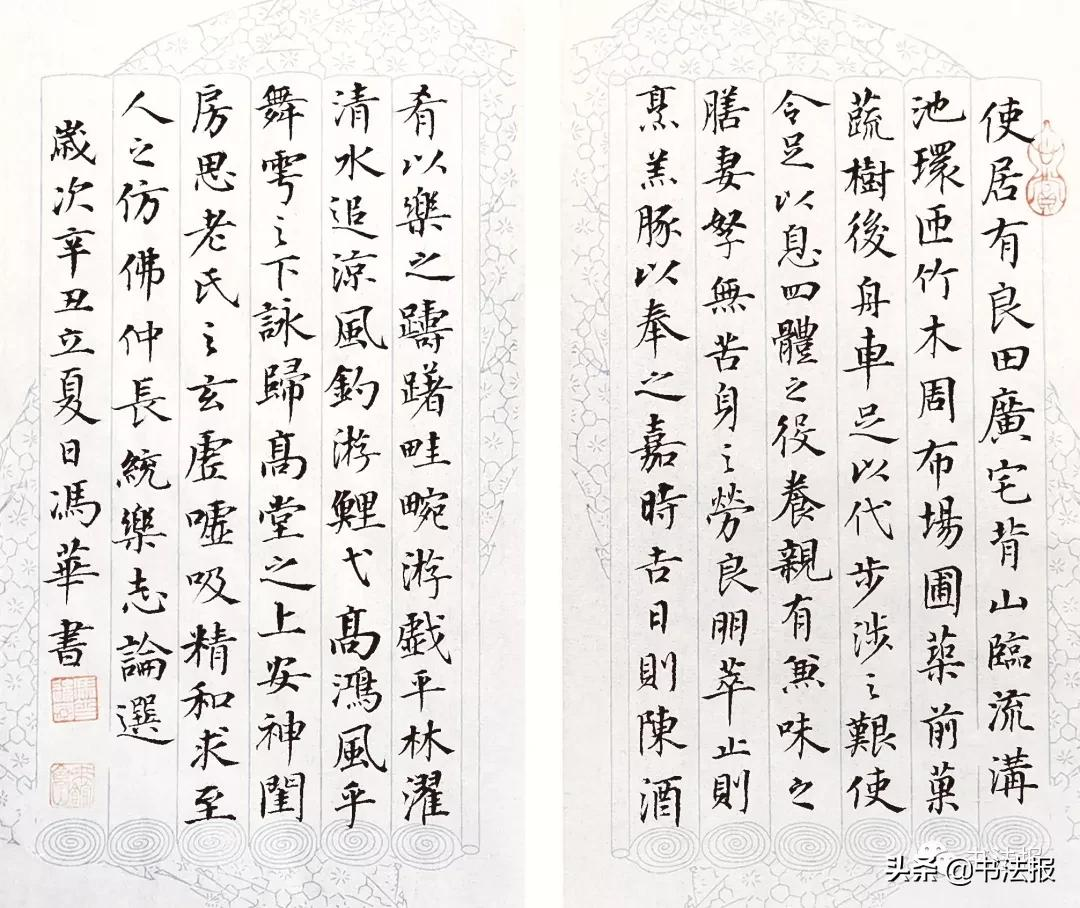 使居有良田廣宅背山臨流溝
池環匝竹木周布場圃築前菓
蔬樹後舟車足以代步涉之艱使
令足以息四體之役養親有兼味之
膳妻孥無苦身之勞良朋萃止則
烹羔豚以奉之嘉時吉日則陳酒
肴以樂之躊躇畦畹游戲平林濯
清水追涼風釣游鯉弋高鴻風乎
舞雩之下詠歸高堂之上安神閨
房思老氏之玄虛噓吸精和求至
人之仿佛仲長統樂志論選
歲次辛丑立夏日馮華書
头条 @书法报